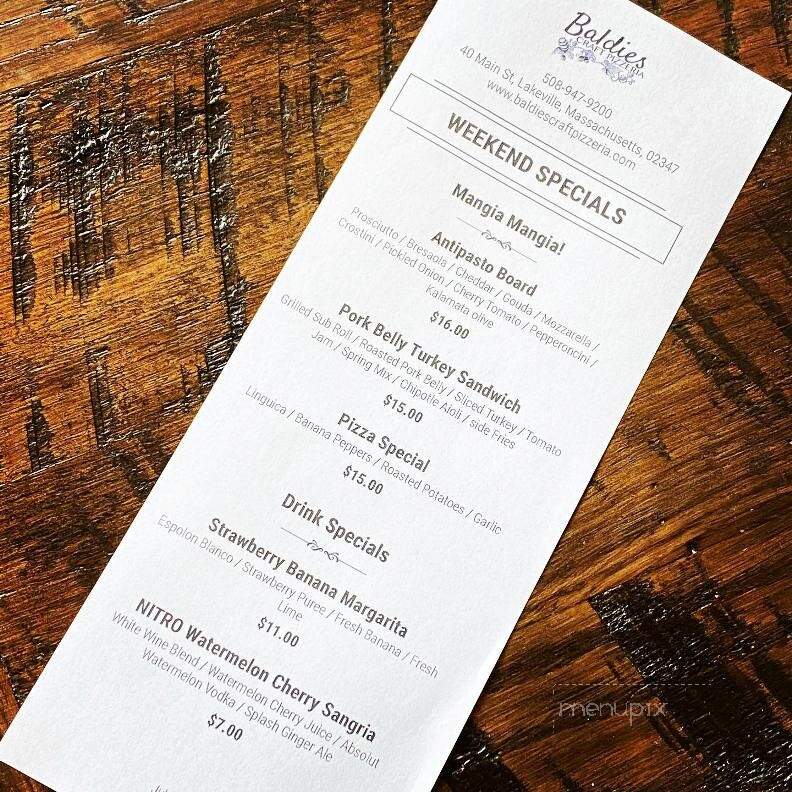 Baldies
CRAFT PIZZERIA
508-947-9200
40 Main St, Lakeville, Massachusetts, 02347
www.baldiescraftpizzeria.com
WEEKEND SPECIALS
Mangia Mangia!
Antipasto Board
Prosciutto / Bresaola / Cheddar / Gouda / Mozzarella /
Crostini / Pickled Onion / Cherry Tomato / Pepperoncini /
Kalamata olive
$16.00
Pork Belly Turkey Sandwich
Grilled Sub Roll / Roasted Pork Belly / Sliced Turkey / Tomato
Jam / Spring Mix / Chipotle Aioli / side Fries
$15.00
Pizza Special
Linguica / Banana Peppers / Roasted Potatoes / Garlic
$15.00
Drink Specials
Strawberry Banana Margarita
Espolon Blanco / Strawberry Puree / Fresh Banana / Fresh
Lime
$11.00
NITRO Watermelon Cherry Sangria
White Wine Blend / Watermelon Cherry Juice / Absolut
Watermelon Vodka / Splash Ginger Ale
$7.00
menupix